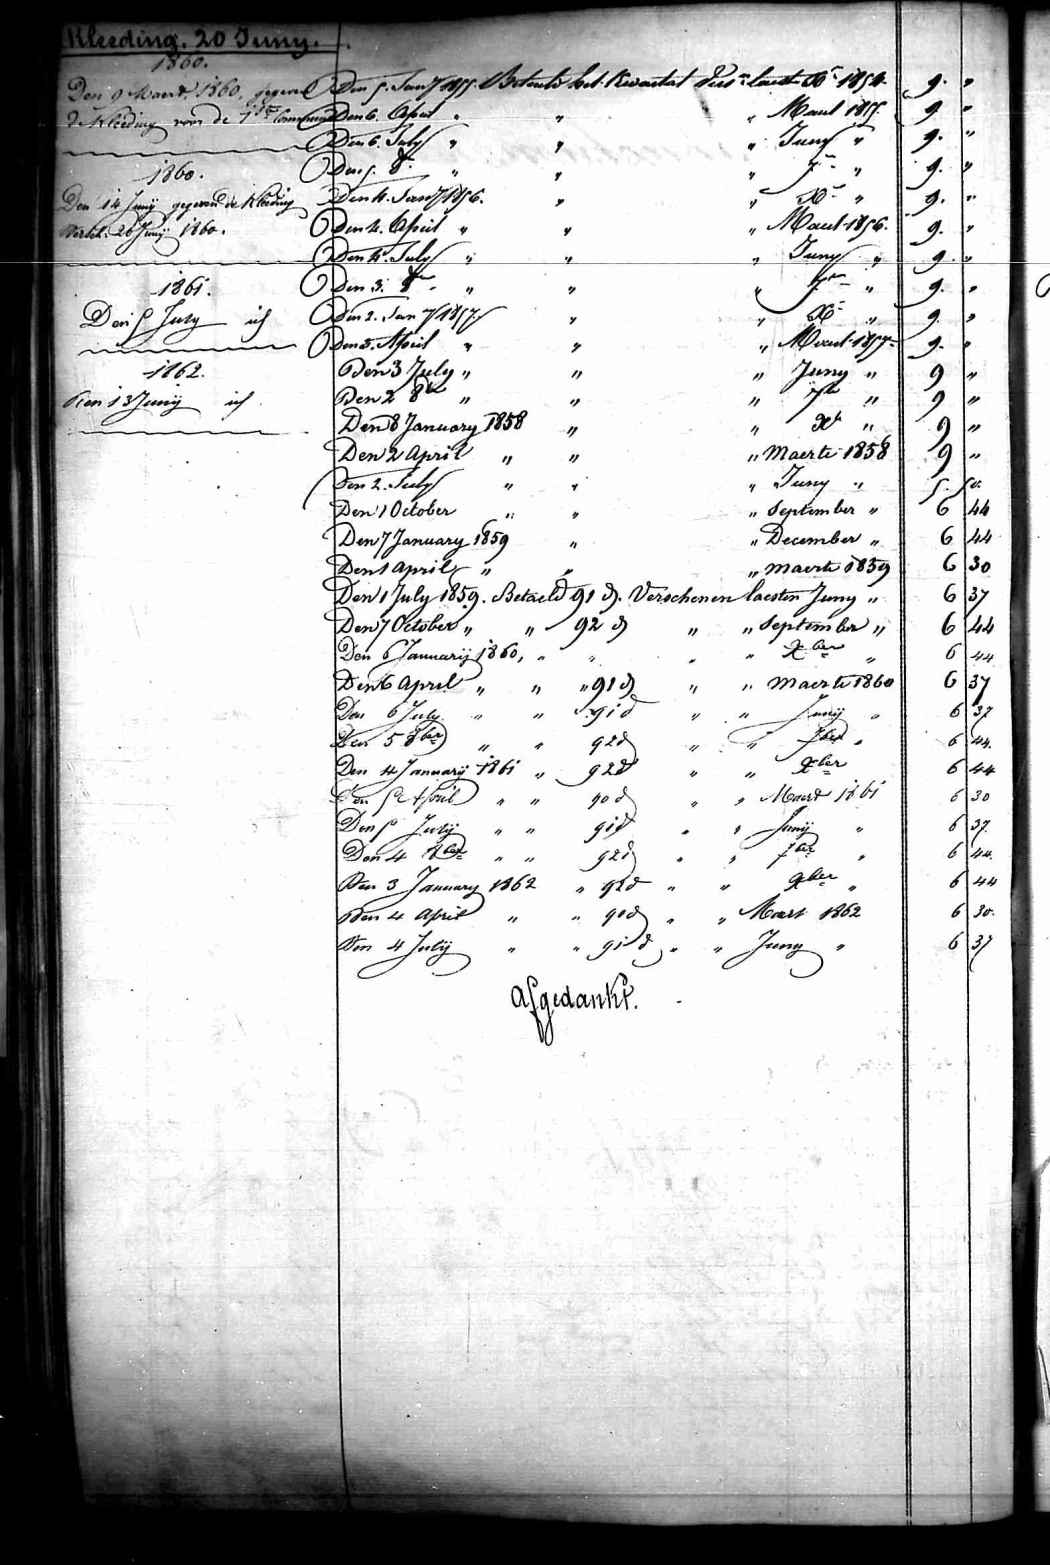 Kleeding. 20 Juny.
1860.
Den 9 Maert 1860 gegeven
de kleeding voor de 1ste Communie
1860.
Den 14 Junij gegeven de kleeding
26 Junij 1860.
1861.
Den 5 July id
1862.
Den 13 Junij id
Den 5. Jan7 1855. Betaeld het Kwartaal laest Xb 1854. 9. "
Den 6. April " " " Maert 1855. 9 "
Den 6. July " " " Juny " 9. "
Den 5. 8br " " " 7br " 9. "
Den 4. Jan7 1856. " " Xb " 9. "
Den 4. April " " " Maert 1856. 9. "
Den 4. July " " " Juny " 9. "
Den 3. 8br " " " 7br " 9. "
Den 2. Jan7 1857 " " Xb " 9. "
Den 3. April " " " Maert 1857 9. "
Den 3 July " " " Juny " 9 "
Den 2 8br " " " 7br " 9 "
Den 8 January 1858 " " Xbr " 9 "
Den 2 April " " " Maerte 1858 9 "
Den 2. July " " " Juny " 5. 50.
Den 1 October " " " September " 6 44
Den 7 January 1859 " " December " 6 44
Den 1 April " " " maerte 1859 6 30
Den 1 July 1859. Betaeld 91 d. Verschenen laesten Juny " 6 37
Den 7 October " " 92 d " " September " 6 44
Den 6 Januarij 1860, " " " " Xber " 6 44
Den 6 April " " " 91 d " " maerte 1860 6 37
Den 6 July " " 91 d " " Junij " 6 37
Den 5 8ber " " 92 d " " 7ber " 6 44.
Den 4 Januarij 1861 " 92 d " " Xber " 6 44
Den 5 April " " 90 d " " Maert 1861 6 30
Den 5 Julij " " 91 d " " Junij " 6 37.
Den 4 8ber " " 92 d " " 7ber " 6 44.
Den 3 January 1862 " 92 d " " Xber " 6 44
Den 4 April " " 90 d " " Maert 1862 6 30.
Den 4 Julij " " 91 d " " Juny " 6 37
Afgedankt.